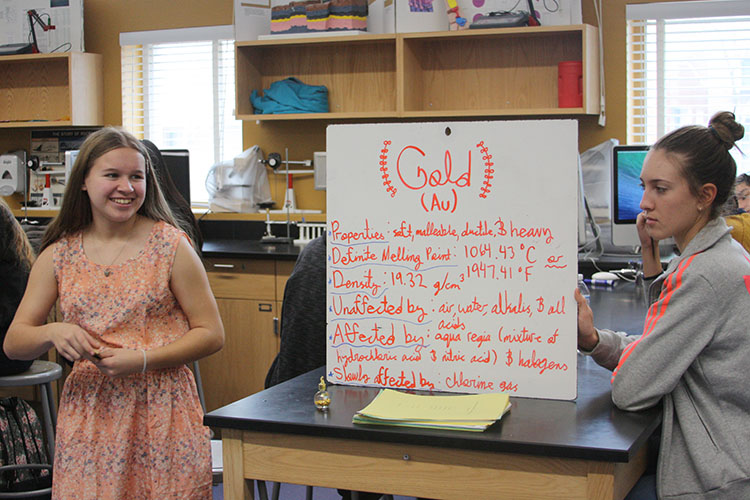 Gold
(Au)
Properties: soft, malleable, ductile, & heavy
Definite Melting Point: 1064.43 °C or
Density: 19.32 g/cm³ 1947.41 °F
Unaffected by: air, water, alkalis, & all
acids
Affected by: aqua regia (mixture of
hydrochloric acid & nitric acid) & halogens
Slowly affected by: chlorine gas